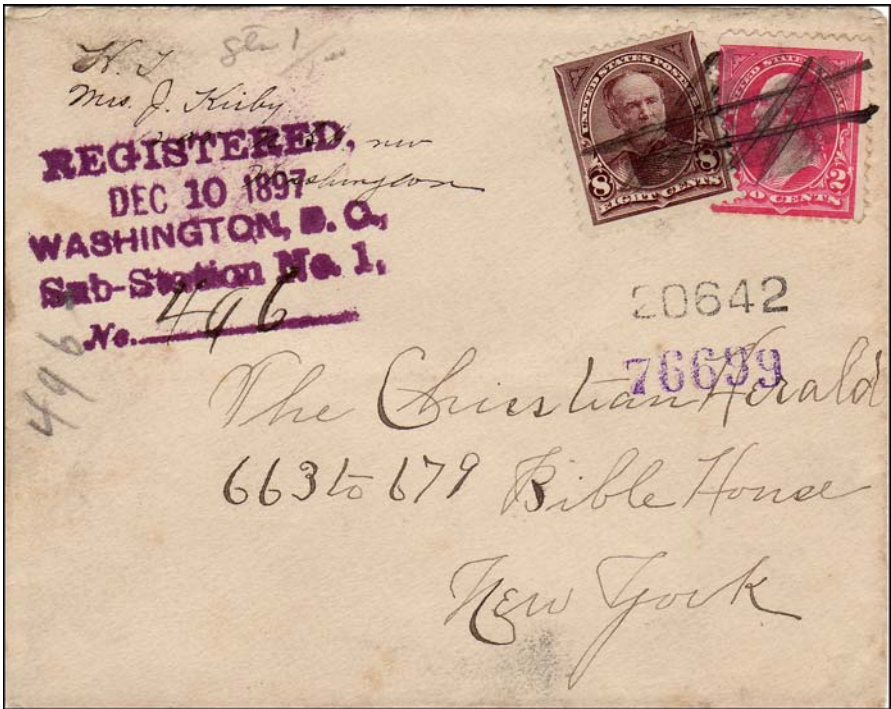 Mrs. J. Kirby
nw
Washington
REGISTERED,
DEC 10 1897
WASHINGTON, D. C.,
Sub-Station No. 1,
No. 496
496
UNITED STATES POSTAGE
8 8
EIGHT CENTS
2
CENTS
20642
76699
The Christian Herald
663 to 679 Bible House
New York